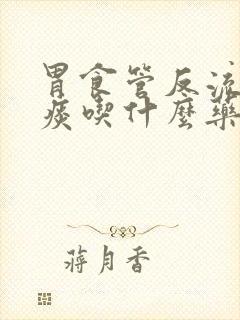 胃食管反流
痰喫什麼藥
蔣月香